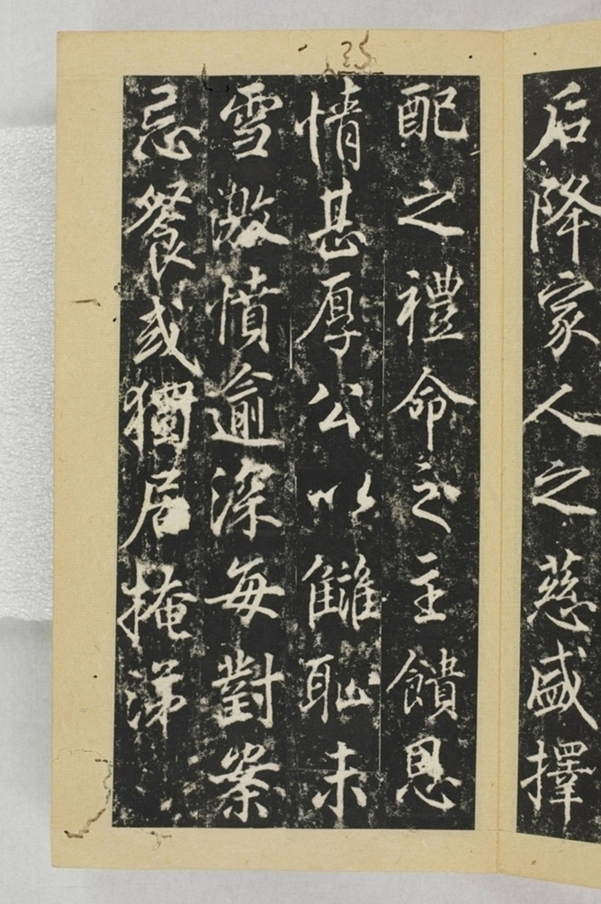 后降家人之慈盛擇
配之禮命之主饋恩
情甚厚公以讎恥未
雪激憤逾深每對案
忌餐或獨居掩涕